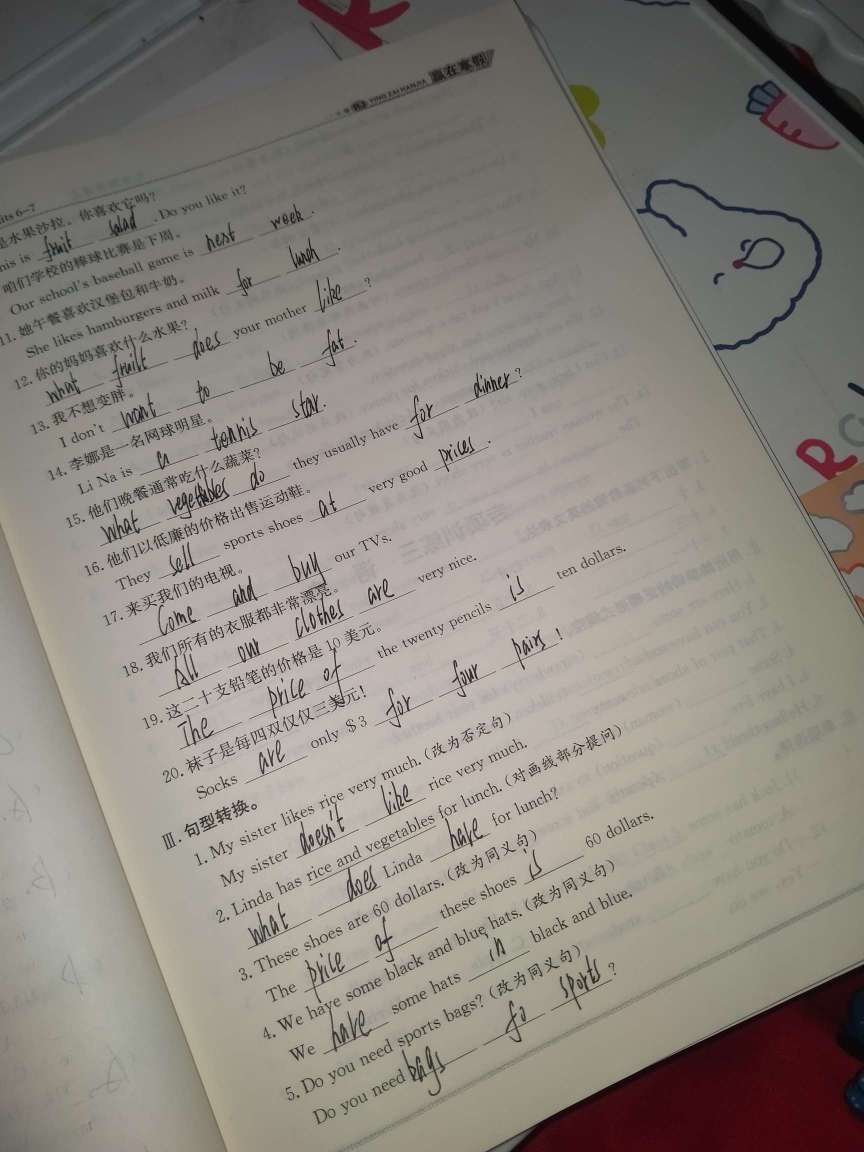 YING ZAI HANJIA 赢在寒假
its 6-7
是水果沙拉。你喜欢它吗?
his is fruit salad. Do you like it?
咱们学校的棒球比赛是下周。
Our school's baseball game is next week.
11. 她午餐喜欢汉堡包和牛奶。
She likes hamburgers and milk for lunch.
12. 你的妈妈喜欢什么水果?
what fruilt does your mother like?
13. 我不想变胖。
I don't want to be fat.
14. 李娜是一名网球明星。
Li Na is a tennis star.
15. 他们晚餐通常吃什么蔬菜?
what vegetables do they usually have for dinner?
16. 他们以低廉的价格出售运动鞋。
They sell sports shoes at very good prices.
17. 来买我们的电视。
Come and buy our TVs.
18. 我们所有的衣服都非常漂亮。
All our clothes are very nice.
19. 这二十支铅笔的价格是10美元。
The price of the twenty pencils is ten dollars.
20. 袜子是每四双仅仅三美元!
Socks are only $3 for four pairs!
Ⅲ. 句型转换。
1. My sister likes rice very much. (改为否定句)
My sister doesn't like rice very much.
2. Linda has rice and vegetables for lunch. (对画线部分提问)
what does Linda have for lunch?
3. These shoes are 60 dollars. (改为同义句)
The price of these shoes is 60 dollars.
4. We have some black and blue hats. (改为同义句)
We have some hats in black and blue.
5. Do you need sports bags? (改为同义句)
Do you need bags fo sports?